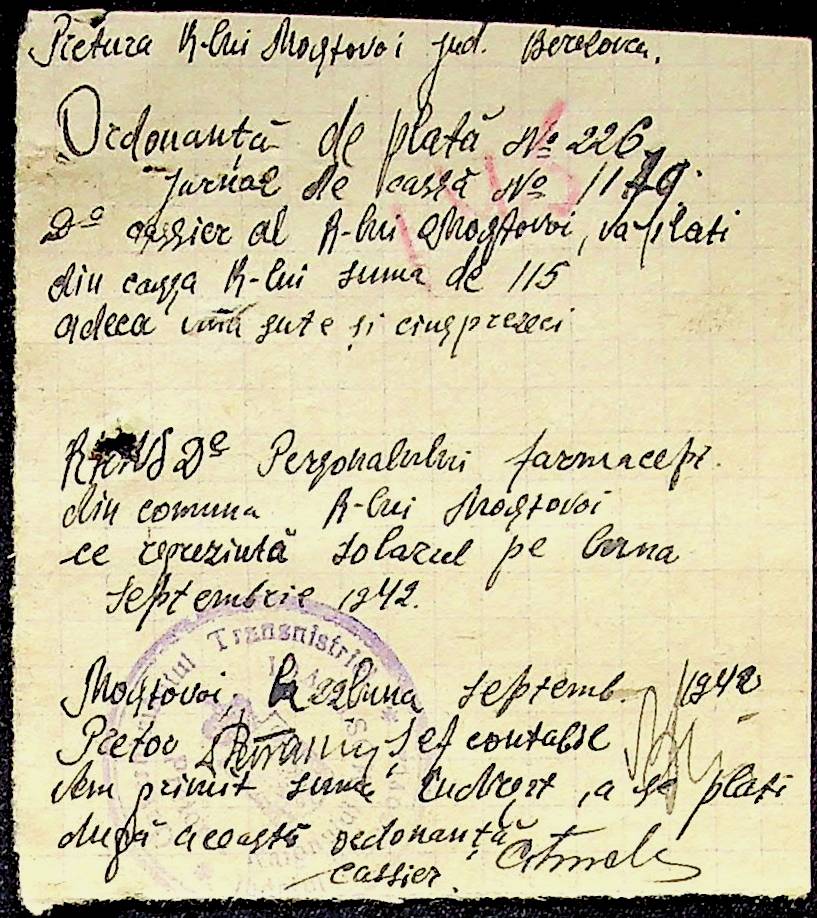 Pretura R-lui Mostovoi jud. Berezovca.
Ordonanță de plată № 226
Jurnal de cassă № 1179
Dº cassier al R-lui Mostovoi, va plati
din cassa R-lui suma de 115
adeca una sute și cinsprezeci
Dº Personalului farmacept.
din comuna R-lui Mostovoi
ce reprezintă solarul pe luna
Septembrie 1942.
Transnistria
Mostovoi, luna septemb. 1942
Pretor Șef contabil
Am primit suma a se plati
după această ordonanță
cassier